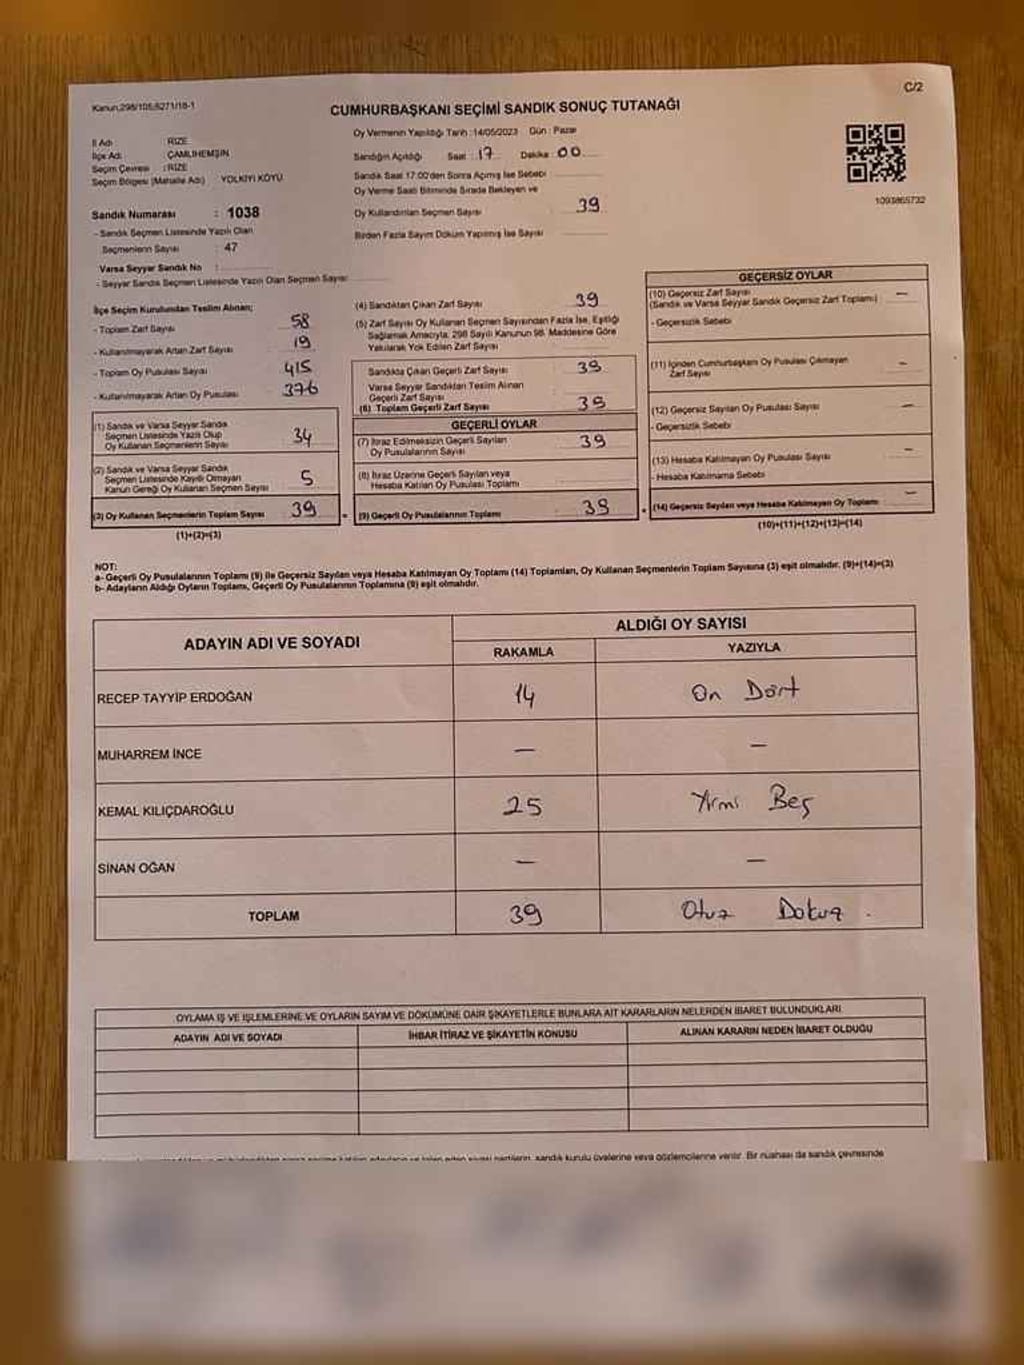 Kanun,298/105,6271/18-1
C/2
CUMHURBAŞKANI SEÇİMİ SANDIK SONUÇ TUTANAĞI
İl Adı RİZE
İlçe Adı ÇAMLIHEMŞİN
Seçim Çevresi : RİZE
Seçim Bölgesi (Mahalle Adı) YOLKIYI KÖYÜ
Sandık Numarası : 1038
- Sandık Seçmen Listesinde Yazılı Olan
Seçmenlerin Sayısı : 47
Varsa Seyyar Sandık No :
- Seyyar Sandık Seçmen Listesinde Yazılı Olan Seçmen Sayısı:
Oy Vermenin Yapıldığı Tarih :14/05/2023 Gün : Pazar
Sandığın Açıldığı Saat : 17 Dakika : 00
Sandık Saat 17:00'den Sonra Açılmış İse Sebebi
Oy Verme Saati Bitiminde Sırada Bekleyen ve
Oy Kullandırılan Seçmen Sayısı 39
Birden Fazla Sayım Döküm Yapılmış İse Sayısı
1093865732
İlçe Seçim Kurulundan Teslim Alınan;
- Toplam Zarf Sayısı 58
- Kullanılmayarak Artan Zarf Sayısı 19
- Toplam Oy Pusulası Sayısı 415
- Kullanılmayarak Artan Oy Pusulası 376
(1) Sandık ve Varsa Seyyar Sandık
Seçmen Listesinde Yazılı Olup
Oy Kullanan Seçmenlerin Sayısı 34
(2) Sandık ve Varsa Seyyar Sandık
Seçmen Listesinde Kayıtlı Olmayan
Kanun Gereği Oy Kullanan Seçmen Sayısı 5
(3) Oy Kullanan Seçmenlerin Toplam Sayısı 39
(1)+(2)=(3)
(4) Sandıktan Çıkan Zarf Sayısı 39
(5) Zarf Sayısı Oy Kullanan Seçmen Sayısından Fazla İse, Eşitliği
Sağlamak Amacıyla, 298 Sayılı Kanunun 98. Maddesine Göre
Yakılarak Yok Edilen Zarf Sayısı
Sandıkta Çıkan Geçerli Zarf Sayısı 39
Varsa Seyyar Sandıktan Teslim Alınan
Geçerli Zarf Sayısı
(6) Toplam Geçerli Zarf Sayısı 39
GEÇERLİ OYLAR
(7) İtiraz Edilmeksizin Geçerli Sayılan
Oy Pusulalarının Sayısı 39
(8) İtiraz Üzerine Geçerli Sayılan veya
Hesaba Katılan Oy Pusulası Toplamı
(9) Geçerli Oy Pusulalarının Toplamı 39
GEÇERSİZ OYLAR
(10) Geçersiz Zarf Sayısı —
(Sandık ve Varsa Seyyar Sandık Geçersiz Zarf Toplamı)
- Geçersizlik Sebebi
(11) İçinden Cumhurbaşkanı Oy Pusulası Çıkmayan
Zarf Sayısı —
(12) Geçersiz Sayılan Oy Pusulası Sayısı —
- Geçersizlik Sebebi
(13) Hesaba Katılmayan Oy Pusulası Sayısı —
- Hesaba Katılmama Sebebi
(14) Geçersiz Sayılan veya Hesaba Katılmayan Oy Toplamı —
(10)+(11)+(12)+(13)=(14)
NOT:
a- Geçerli Oy Pusulalarının Toplamı (9) ile Geçersiz Sayılan veya Hesaba Katılmayan Oy Toplamı (14) Toplamları, Oy Kullanan Seçmenlerin Toplam Sayısına (3) eşit olmalıdır. (9)+(14)=(3)
b- Adayların Aldığı Oyların Toplamı, Geçerli Oy Pusulalarının Toplamına (9) eşit olmalıdır.
ADAYIN ADI VE SOYADI ALDIĞI OY SAYISI
RAKAMLA YAZIYLA
RECEP TAYYİP ERDOĞAN 14 On Dört
MUHARREM İNCE — —
KEMAL KILIÇDAROĞLU 25 Yirmi Beş
SİNAN OĞAN — —
TOPLAM 39 Otuz Dokuz .
OYLAMA İŞ VE İŞLEMLERİNE VE OYLARIN SAYIM VE DÖKÜMÜNE DAİR ŞİKAYETLERLE BUNLARA AİT KARARLARIN NELERDEN İBARET BULUNDUKLARI
ADAYIN ADI VE SOYADI İHBAR İTİRAZ VE ŞİKAYETİN KONUSU ALINAN KARARIN NEDEN İBARET OLDUĞU
sandık kurulu üyelerine veya gözlemcilerine verilir. Bir nüshası da sandık çevresinde